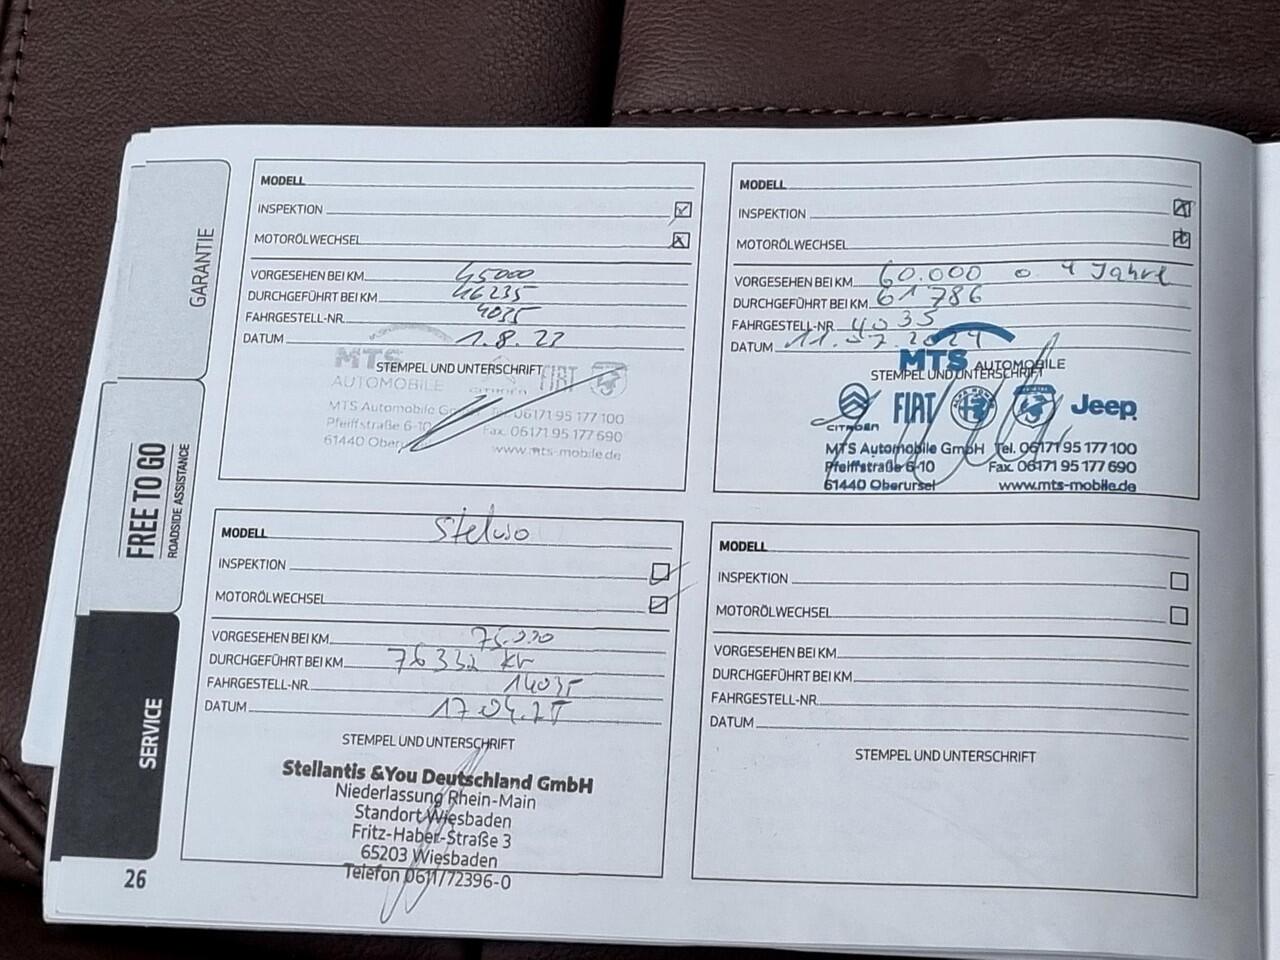 GARANTIE
FREE TO GO
ROADSIDE ASSISTANCE
SERVICE
26
MODELL
INSPEKTION
MOTORÖLWECHSEL
VORGESEHEN BEI KM 45000
DURCHGEFÜHRT BEI KM 46235
FAHRGESTELL-NR. 4035
DATUM 1.8.23
STEMPEL UND UNTERSCHRIFT
MTS
AUTOMOBILE
CITROËN FIAT
MTS Automobile GmbH Tel. 06171 95 177 100
Pfeiffstraße 6-10 Fax. 06171 95 177 690
61440 Oberursel www.mts-mobile.de
MODELL
INSPEKTION
MOTORÖLWECHSEL
VORGESEHEN BEI KM 60.000 o. 4 Jahre
DURCHGEFÜHRT BEI KM 61786
FAHRGESTELL-NR. 4035
DATUM 11.07.2024
MTS AUTOMOBILE
STEMPEL UND UNTERSCHRIFT
CITROËN FIAT Jeep
MTS Automobile GmbH Tel. 06171 95 177 100
Pfeiffstraße 6-10 Fax. 06171 95 177 690
61440 Oberursel www.mts-mobile.de
MODELL Stelvio
INSPEKTION
MOTORÖLWECHSEL
VORGESEHEN BEI KM 75.000
DURCHGEFÜHRT BEI KM 76332 km
FAHRGESTELL-NR. 14035
DATUM 17.04.25
STEMPEL UND UNTERSCHRIFT
Stellantis &You Deutschland GmbH
Niederlassung Rhein-Main
Standort Wiesbaden
Fritz-Haber-Straße 3
65203 Wiesbaden
Telefon 0611/72396-0
MODELL
INSPEKTION
MOTORÖLWECHSEL
VORGESEHEN BEI KM
DURCHGEFÜHRT BEI KM
FAHRGESTELL-NR.
DATUM
STEMPEL UND UNTERSCHRIFT